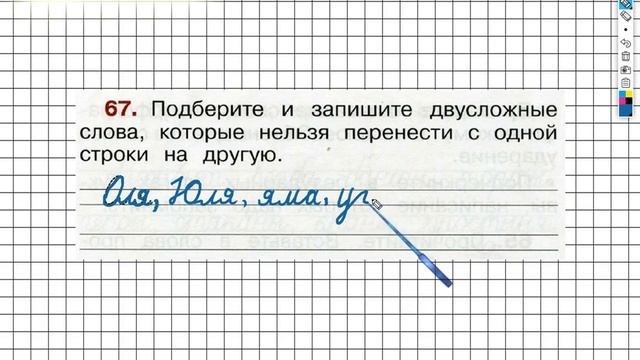 67. Подберите и запишите двусложные
слова, которые нельзя перенести с одной
строки на другую.
Оля, Юля, яма,